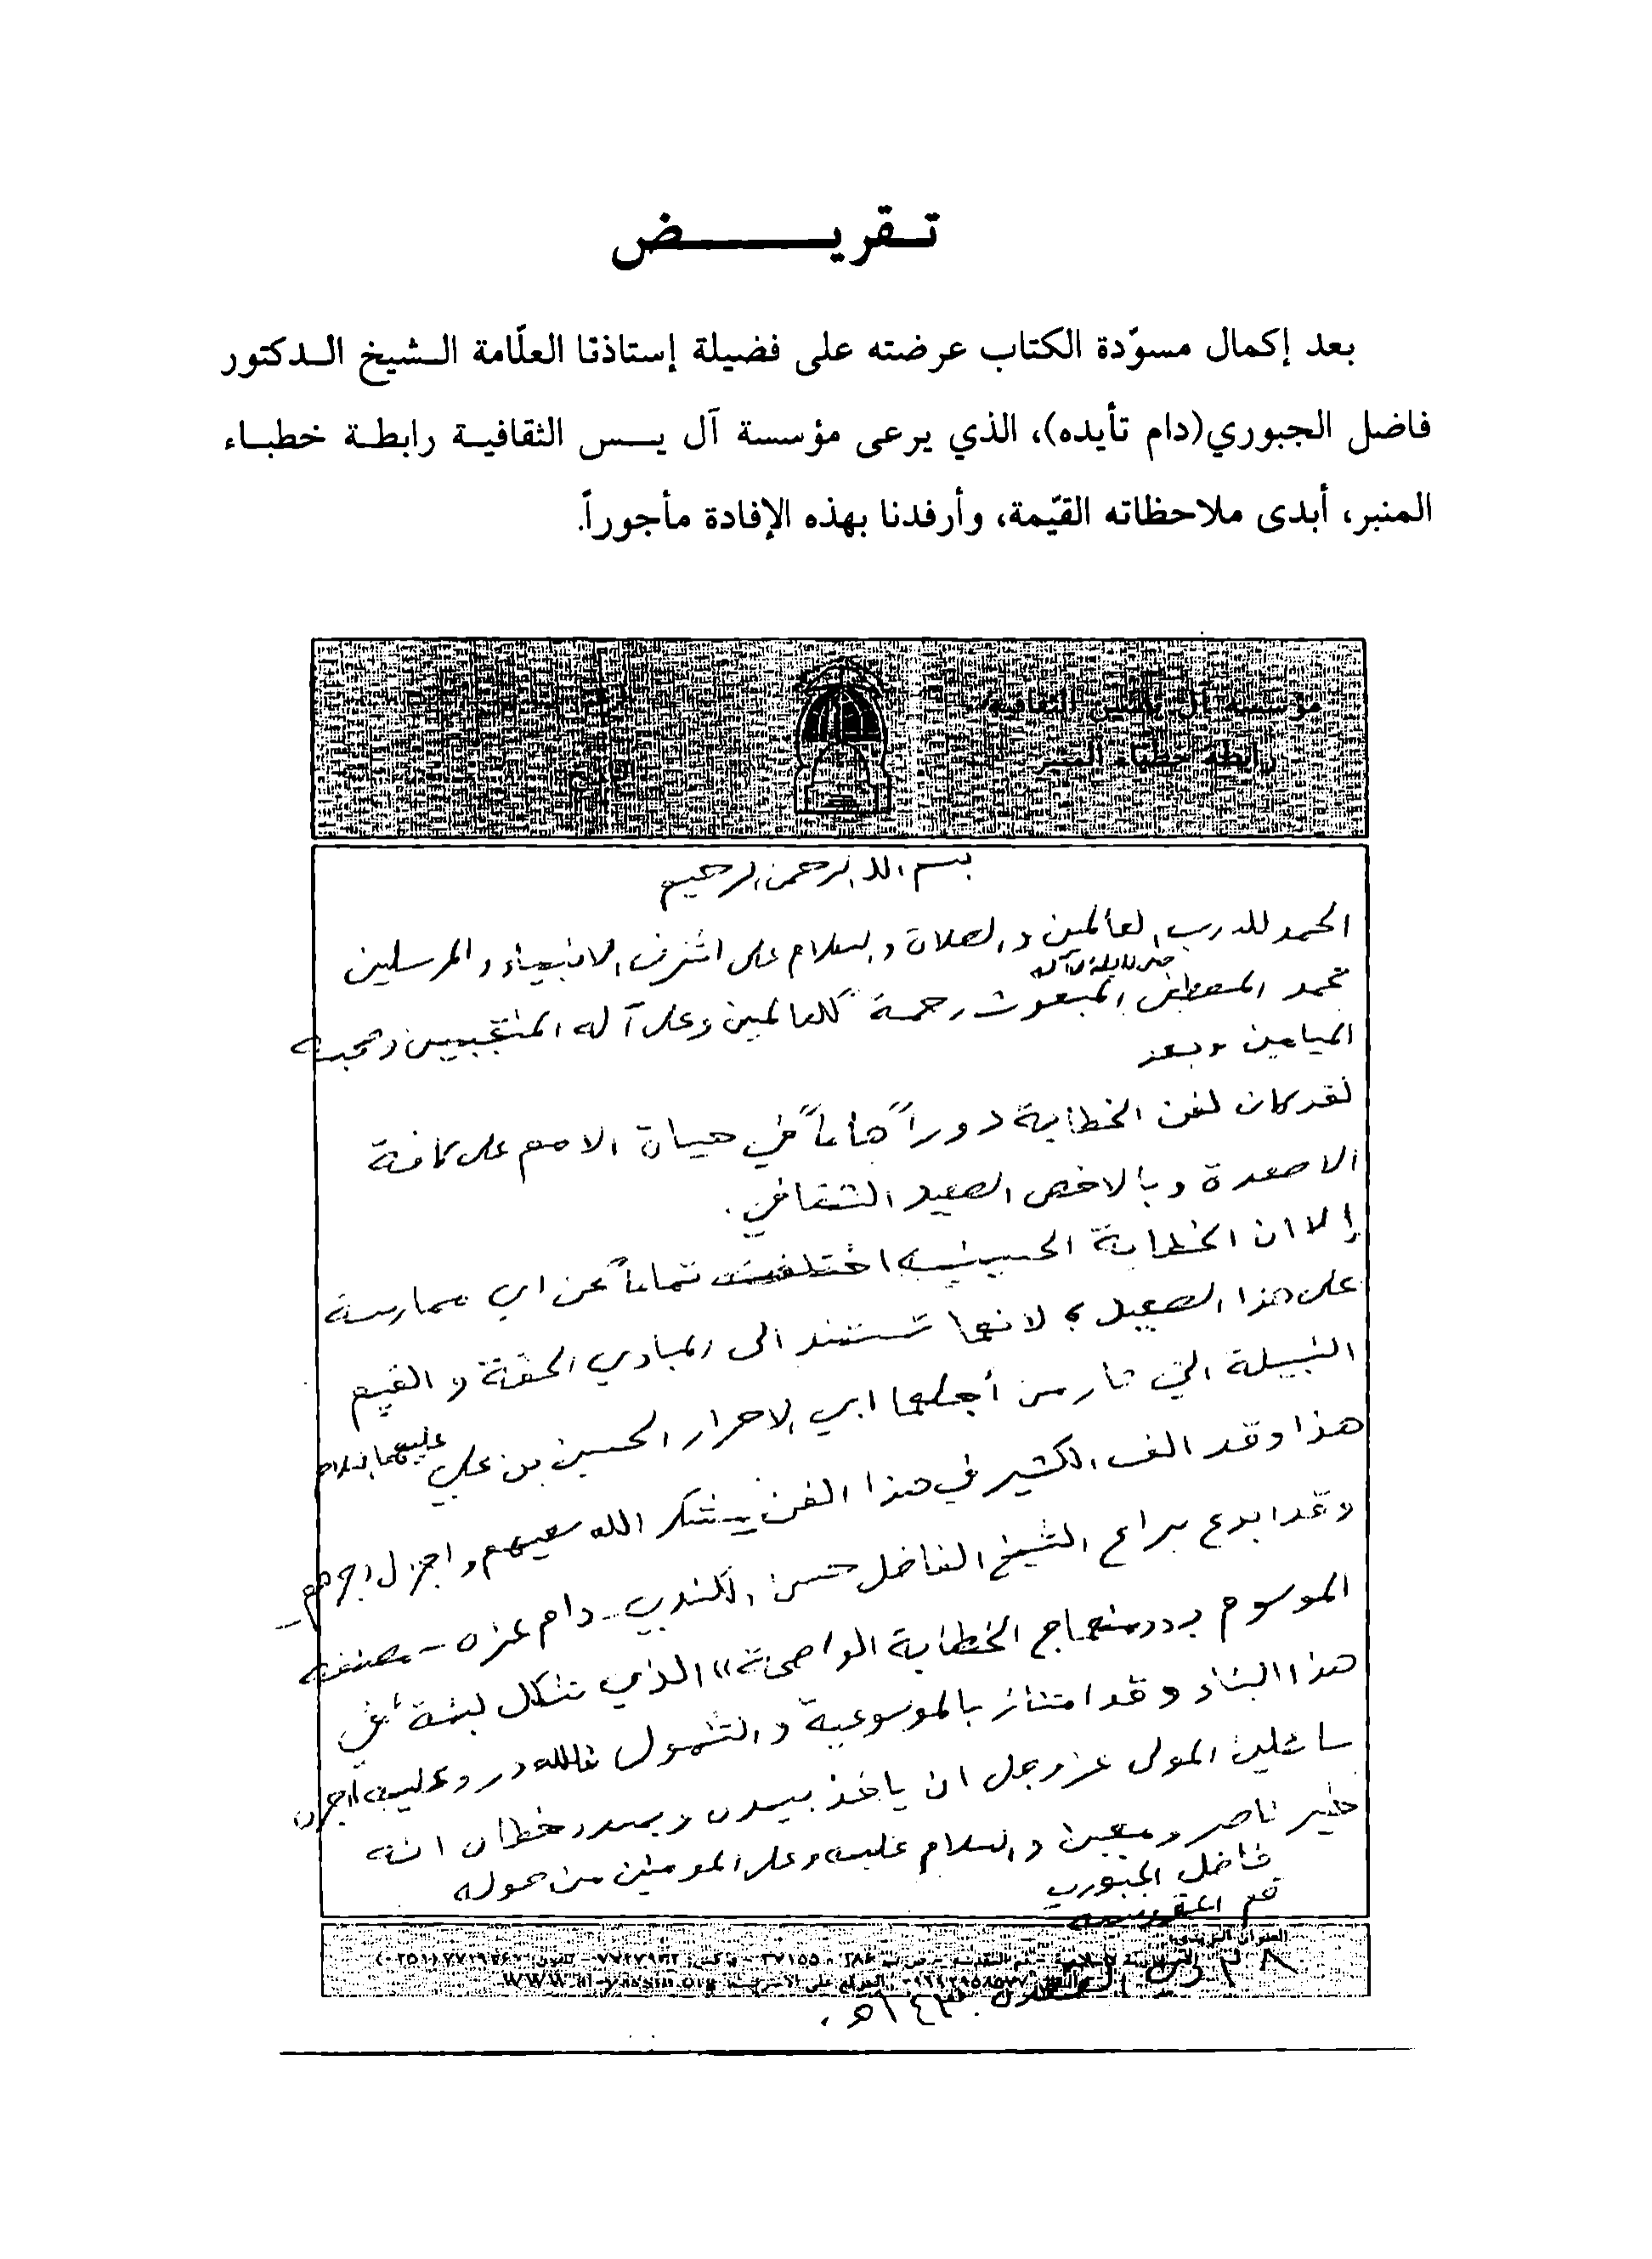 تـقريـــــــض
بعد إكمال مسوّدة الكتاب عرضته على فضيلة إستاذنا العلّامة الـشيخ الـدكتور
فاضل الجبوري(دام تأيده)، الذي يرعى مؤسسة آل يــس الثقافيـة رابطـة خطبـاء
المنبر، أبدى ملاحظاته القيّمة، وأرفدنا بهذه الإفادة مأجوراً.
مؤسسة آل ياسين الثقافية
رابطة خطباء المنبر
التاريخ
بسم الله الرحمن الرحيم
الحمد لله رب العالمين والصلاة والسلام على اشرف الانبياء والمرسلين
محمد المصطفى المبعوث رحمة للعالمين وعلى آله المنتجبين وصحبه
الميامين وبعد
لقد كان لفن الخطابة دوراً هاماً في حياة الامم على كافة
الاصعدة وبالاخص الصعيد الثقافي.
إلا ان الخطابة الحسينيه اختلفت تماماً عن اي ممارسة
على هذا الصعيد، لانها تستند الى المبادي الحقة والقيم
النبيلة التي ثار من أجلها ابي الاحرار الحسين بن علي عليهما السلام
هذا وقد الف الكثير في هذا الفن يشكر الله سعيهم واجزل اجرهم
وقد ابدع يراع الشيخ الفاضل حسن الكندي - دام عزه - مصنفه
الموسوم بـ((منهاج الخطابة الواضحة)) الذي شكل لبنة في
هذا البناء وقد امتاز بالموسوعية والشمول فلله دره وعليه اجره
سائلين المولى عز وجل ان ياخذ بيده ويسدد خطاه انه
خير ناصر ومعين والسلام عليه وعلى المومنين من حوله
فاضل الجبوري
قم المقدسه
العنوان البريدي:
WWW.al-yassin.org
١٤٣٠هـ.